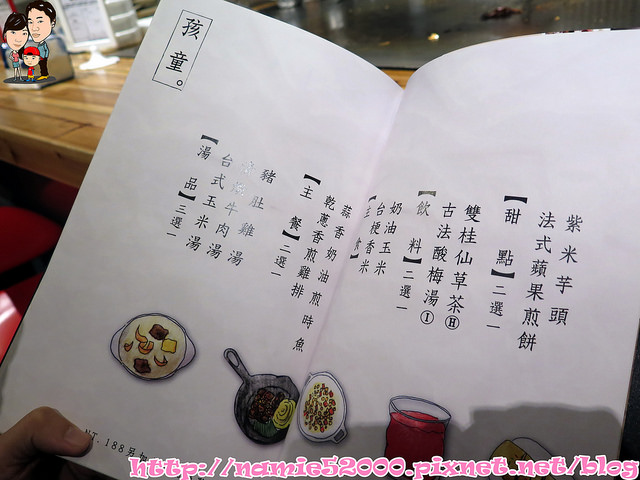 孩童。
【湯品】三選一
台式玉米湯
牛肉湯
豬肚雞湯
【主餐】二選一
乾蔥香煎雞排
蒜香奶油煎時魚
【主食】
台梗香米
奶油玉米
【飲料】二選一
古法酸梅湯Ⓘ
雙桂仙草茶Ⓗ
【甜點】二選一
法式蘋果煎餅
紫米芋頭
NT.188另
http://namie52000.pixnet.net/blog